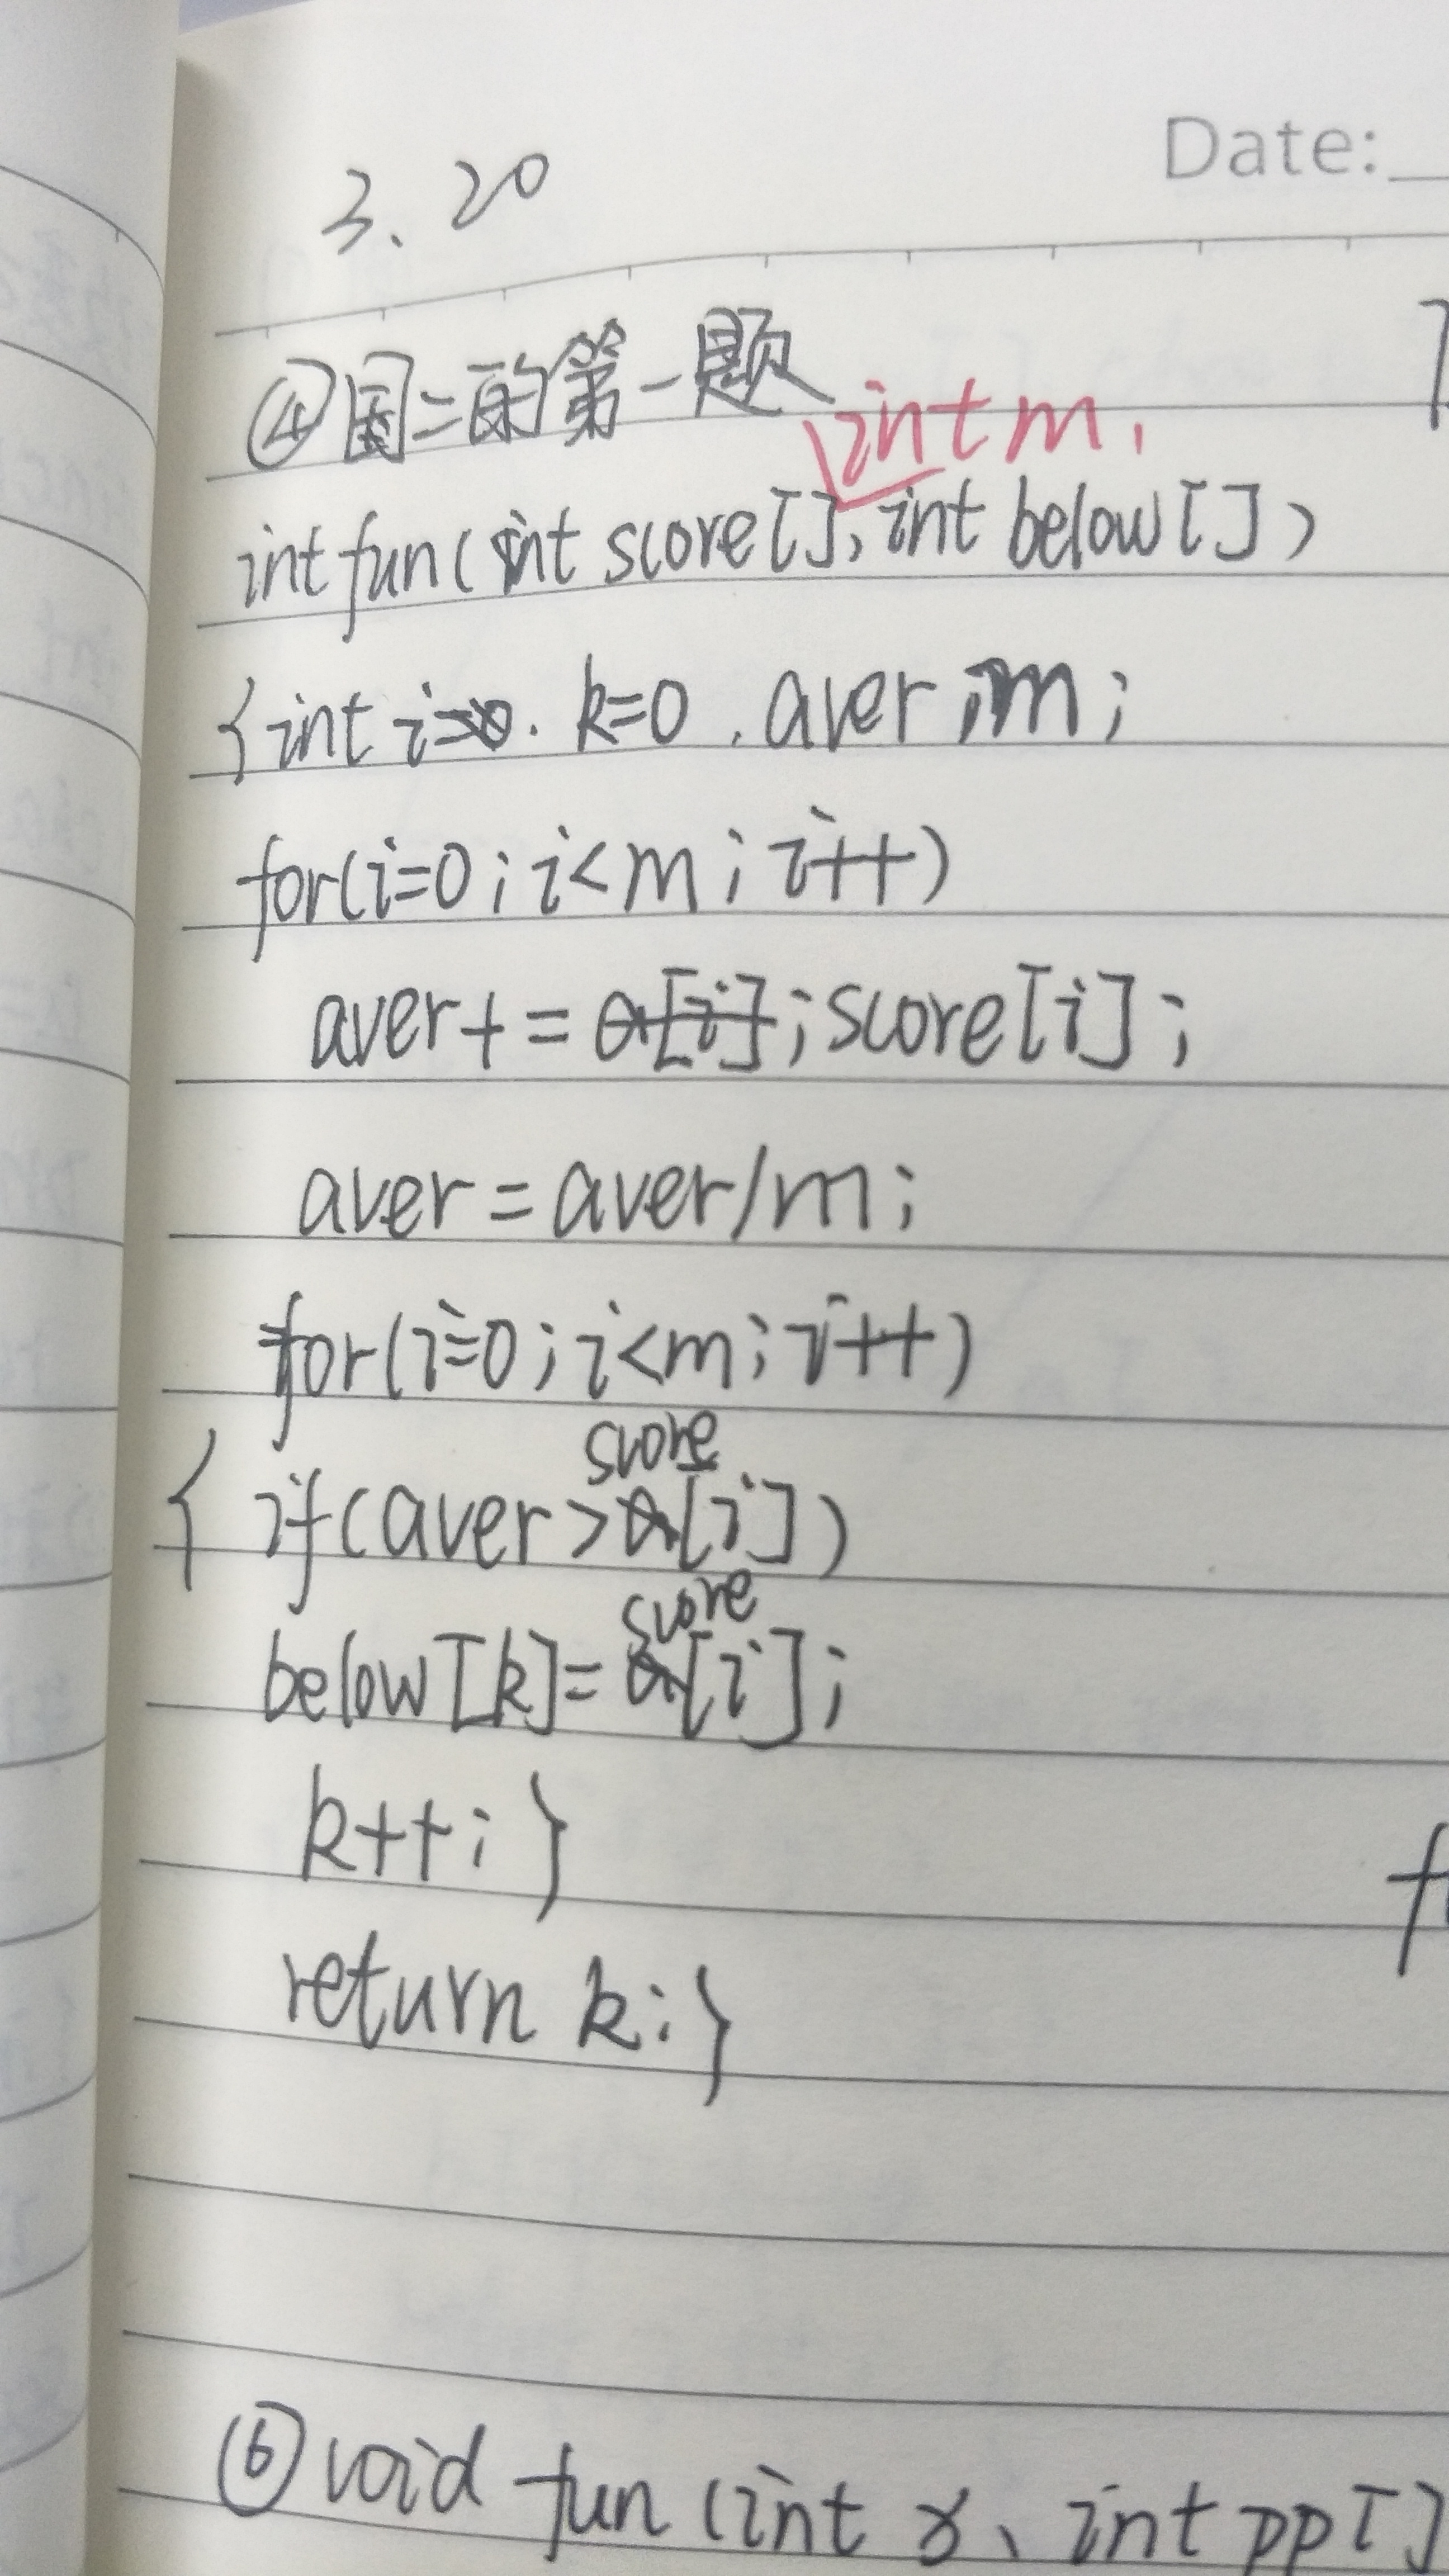 Date:
3、20
④国二的第一题
int m,
int fun(int score[], int below[])
{int i=0. k=0 . aver ,m;
for(i=0; i<m; i++)
aver+= a[i]; score[i];
aver = aver/m;
for(i=0; i<m; i++)
score
{ if(aver>a[i])
score
below[k]=a[i];
k++; }
return k; }
⑥void fun (int x、int pp[]